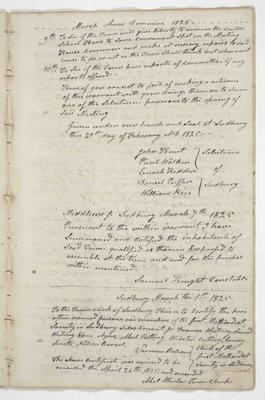 March Anno Domini 1825
9th To See if the Town will give liberty to remove the Centre
School House to some convenient spot on the Meeting
House Common and make all necessary repairs to said
House or to do or act as the Town shall think best when
10th To See if the Town hear reports of committees if any
reports offered
Hereof you are not to fail of making a return
of this warrant with your doings thereon to some
one of the Selectmen previous to the opening of
said Meeting
Given under our hands and Seal at Sudbury
this 28th day of February AD 1825
John Hunt
Paul Walker
Enoch Kidder
Daniel Puffer
William Rice
Selectmen
of
Sudbury
Middlesex ss Sudbury March 7th 1825
Pursuant to the within warrant I have
Summoned and notified the inhabitants of
said Town qualified as therein Expressed to
assemble at the time and and for the purpose
within mentioned
Samuel Knight Constable
Sudbury March the 1st 1825
To the Town clerk of Sudbury this is to certify the here
after named persons are members of the first Methodist
Society in Sudbury
Smith
Clerk of the
first Methodist
Society in Sudbury
The above certificate was agreed to be
recorded the April 26th 1825 and recorded
Town Clerk